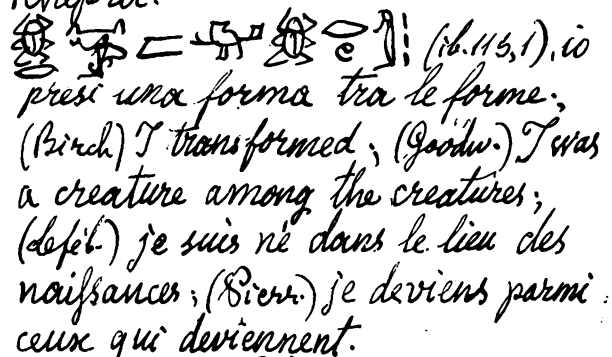 (ib. 115, 1), io
presi una forma tra le forme;
(Birch) I transformed; (Goodw.) I was
a creature among the creatures;
(Leféb.) je suis né dans le lieu des
naissances; (Pierr.) je deviens parmi
ceux qui deviennent.